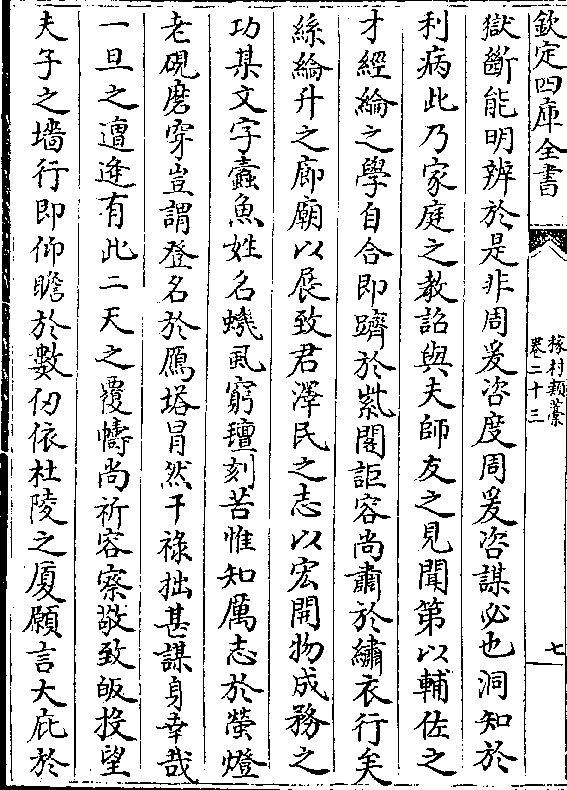 欽定四庫全書
稼村類藁
卷二十三
七
獄斷能明辨於是非周爰咨度周爰咨謀必也洞知於
利病此乃家庭之教詔與夫師友之見聞第以輔佐之
才經綸之學自合即躋於紫閣詎容尚肅於繡衣行矣
絲綸升之廊廟以展致君澤民之志以宏開物成務之
功某文字蠧魚姓名蟣虱窮𤮜刻苦惟知厲志於螢燈
老硯磨穿豈謂登名於鴈塔冒然干祿拙甚謀身幸哉
一旦之遭逢有此二天之覆幬尚祈容察敬致皈投望
夫子之墻行即仰瞻於數仞依杜陵之厦願言大庇於